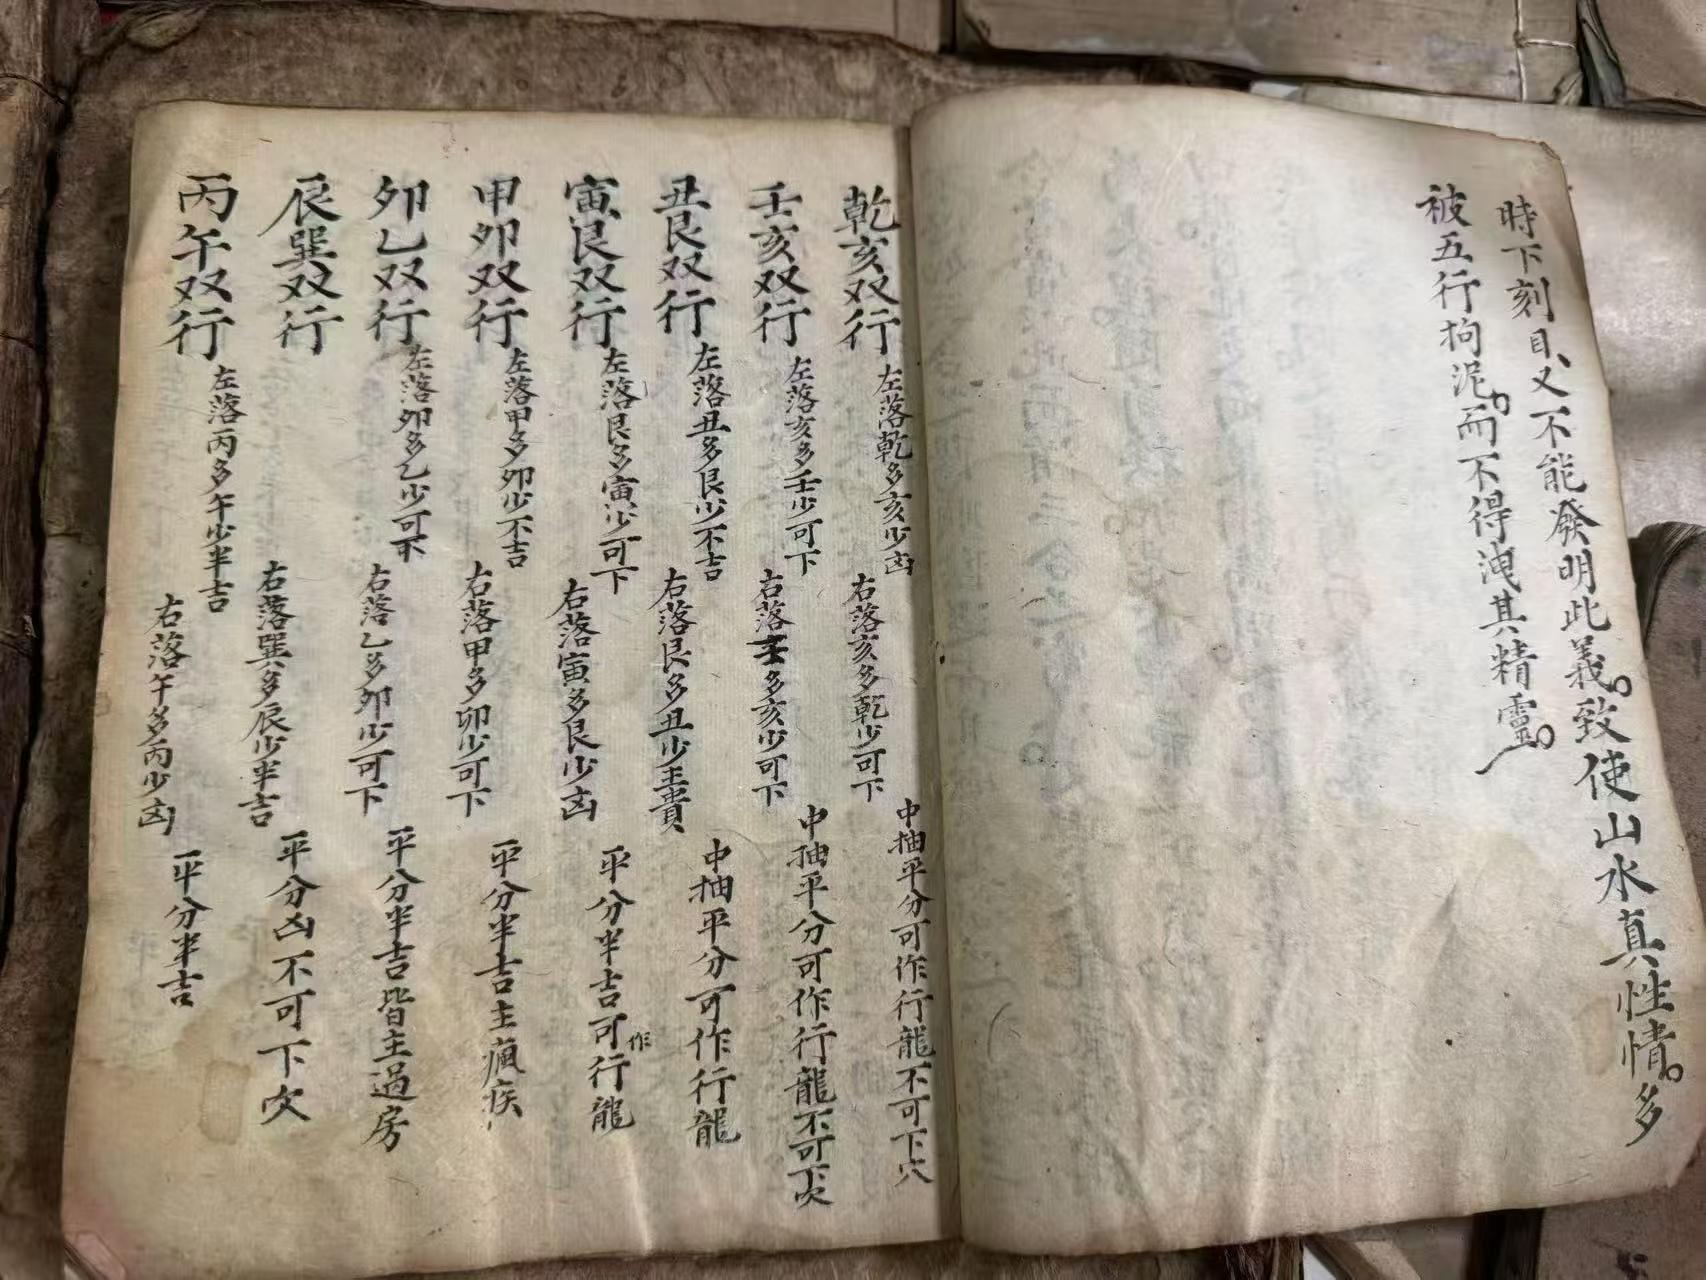 時下刻目、又不能發明此義。致使山水真性情。多
被五行拘泥。而不得洩其精靈。
乾亥双行 左落乾多亥少凶 右落亥多乾少可下 中抽平分可作行龍不可下穴
壬亥双行 左落亥多壬少可下 右落壬多亥少可下 中抽平分可作行龍不可下穴
丑艮双行 左落丑多艮少不吉 右落艮多丑少主貴 中抽平分可作行龍
寅艮双行 左落艮多寅少可下 右落寅多艮少凶 平分半吉可作行龍
甲卯双行 左落甲多卯少不吉 右落甲多卯少可下 平分半吉主瘋疾
卯乙双行 左落卯多乙少可下 右落乙多卯少可下 平分半吉皆主過房
辰巽双行 右落巽多辰少半吉 平分凶不可下穴
丙午双行 左落丙多午少半吉 右落午多丙少凶 平分半吉